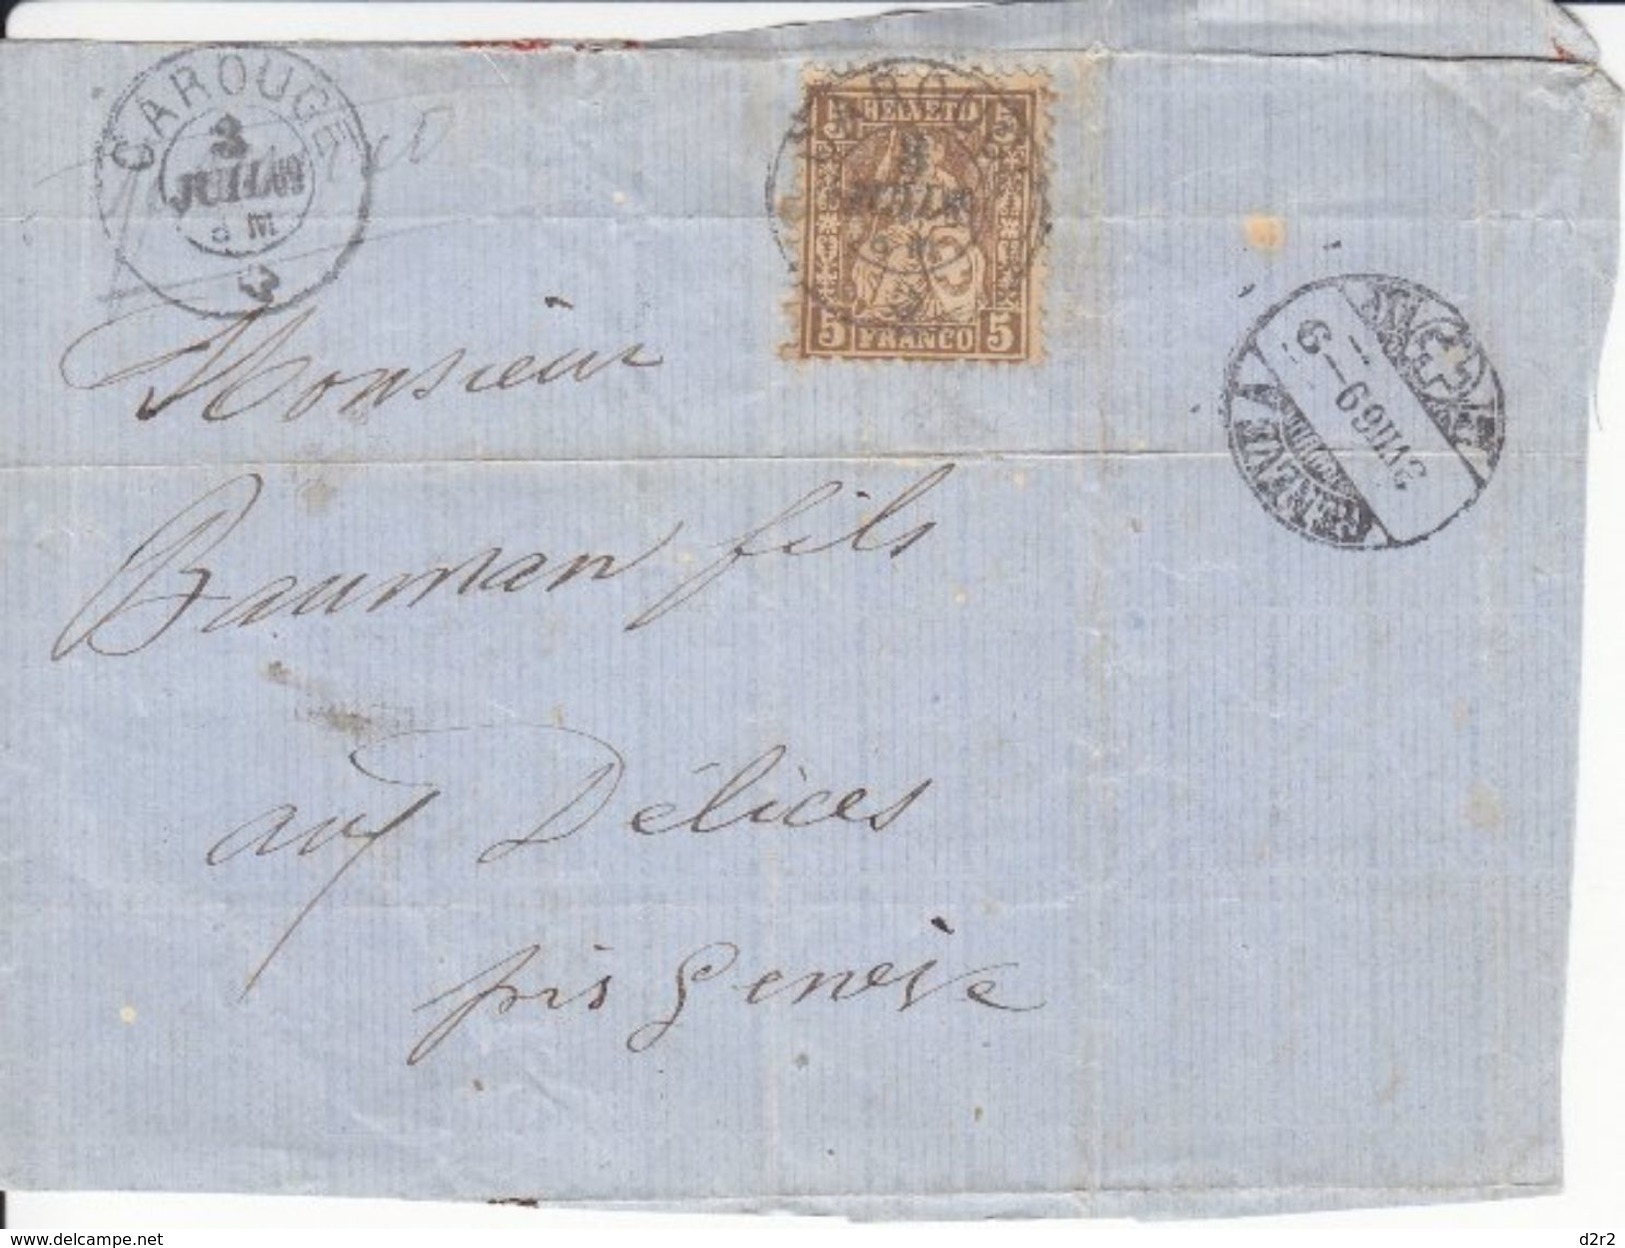 CAROUGE
3
JUILL 69
M
Franco
5 HELVETIA 5
5 FRANCO 5
GENÈVE
3 VII 69 - 9
Monsieur
Bauman fils
aux Délices
près Genève
www.delcampe.net
d2r2